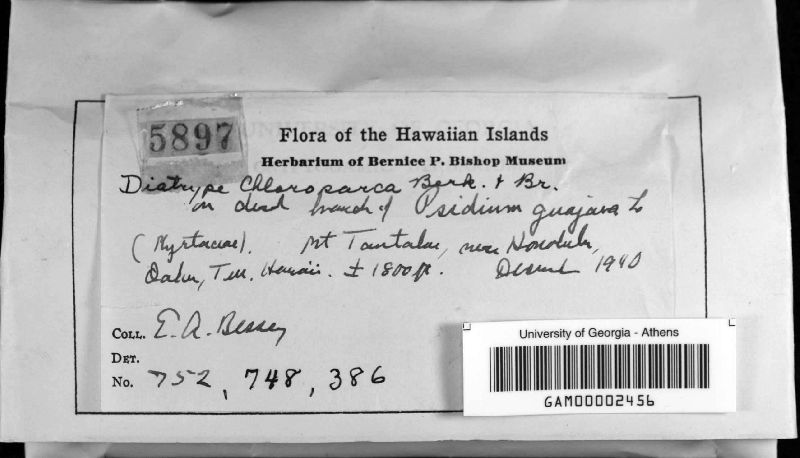 5897
Flora of the Hawaiian Islands
Herbarium of Bernice P. Bishop Museum
Diatrype Chloroparca Berk. & Br.
on dead branch of Psidium guajava L
(Myrtaceae). Mt Tantalus, near Honolulu,
Oahu, Terr. Hawaii. ± 1800 ft. 1940
COLL. E. A. Bessey
DET.
No. 752, 748, 386
University of Georgia - Athens
GAM00002456